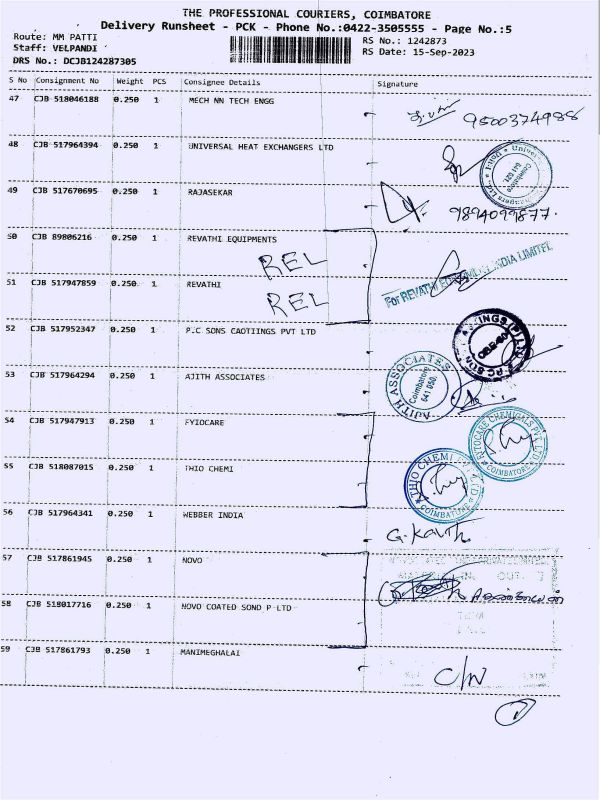 THE PROFESSIONAL COURIERS, COIMBATORE
Delivery Runsheet - PCK - Phone No.:0422-3505555 - Page No.:5
Route: MM PATTI RS No.: 1242873
Staff: VELPANDI RS Date: 15-Sep-2023
DRS No.: DCJB124287305
S No Consignment No Weight PCS Consignee Details Signature
47 CJB 518046188 0.250 1 MECH NN TECH ENGG 9500374988
48 CJB 517964394 0.250 1 UNIVERSAL HEAT EXCHANGERS LTD
49 CJB 517670695 0.250 1 RAJASEKAR 9894099877.
50 CJB 89806216 0.250 1 REVATHI EQUIPMENTS REL
For REVATHI EQUIPMENT INDIA LIMITED
51 CJB 517947859 0.250 1 REVATHI REL
52 CJB 517952347 0.250 1 P.C SONS CAOTIINGS PVT LTD
53 CJB 517964294 0.250 1 AJITH ASSOCIATES
AJITH ASSOCIATES Coimbatore 641 050.
54 CJB 517947913 0.250 1 FYIOCARE
FYTOCARE CHEMICALS PVT. LTD COIMBATORE
55 CJB 518087015 0.250 1 THIO CHEMI
THIO CHEMI COIMBATORE
56 CJB 517964341 0.250 1 WEBBER INDIA G. Kavith
57 CJB 517861945 0.250 1 NOVO
58 CJB 518017716 0.250 1 NOVO COATED SOND P LTD
59 CJB 517861793 0.250 1 MANIMEGHALAI C/N